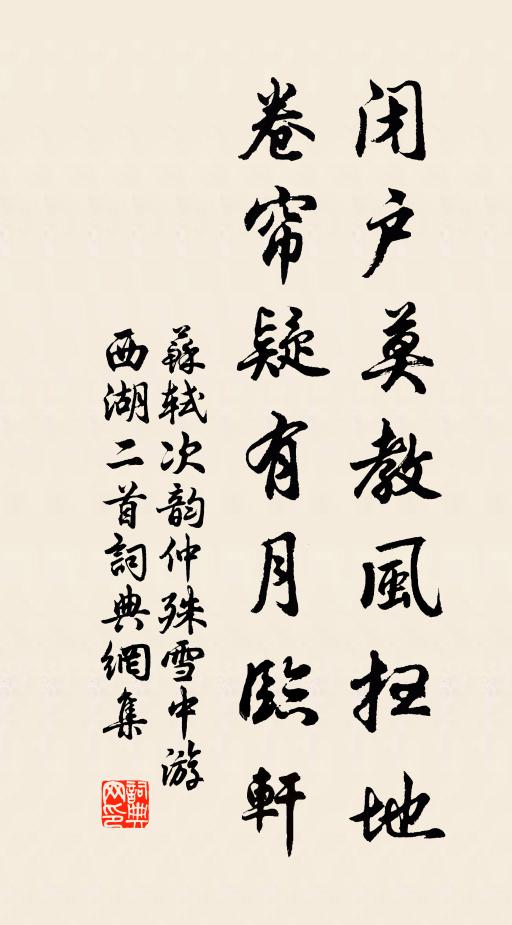 闭户莫教風扫地
卷帘疑有月臨軒
蘇轼次韵仲殊雪中游
西湖二首詞典網集
詞典网印